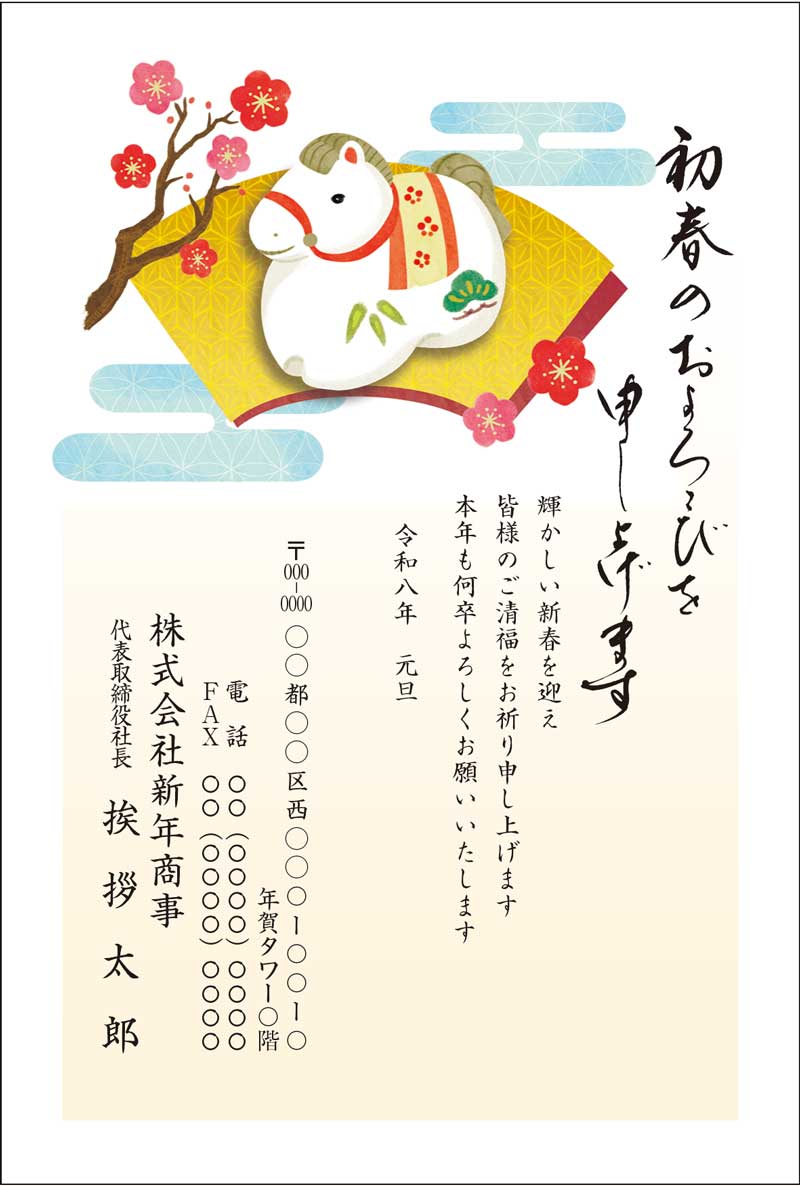 初春のおよろこびを
申し上げます
輝かしい新春を迎え
皆様のご清福をお祈り申し上げます
本年も何卒よろしくお願いいたします
令和八年 元旦
〒000-0000 〇〇都〇〇区西〇〇〇ー〇〇ー〇
年賀タワー〇階
電話 〇〇(〇〇〇〇)〇〇〇〇
FAX 〇〇(〇〇〇〇)〇〇〇〇
株式会社新年商事
代表取締役社長 挨拶太郎